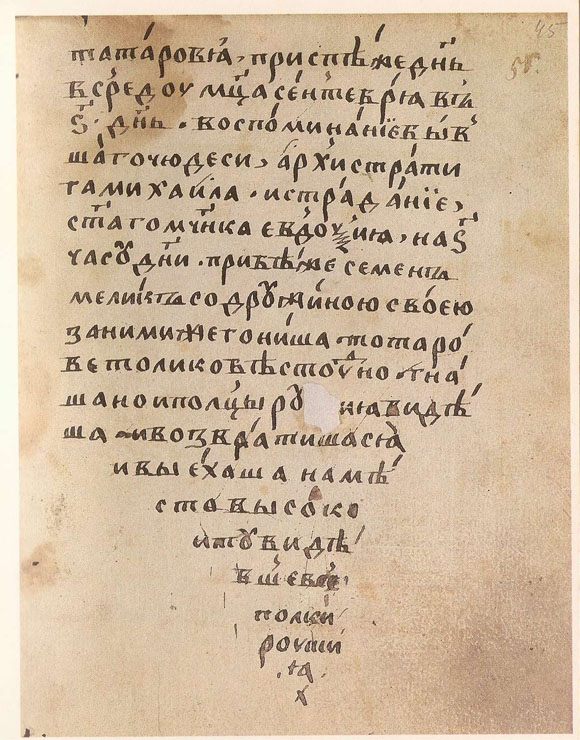 45
татаровѧ, приспѣ же дн҃ь
в средоу мц҃а сентеврїѧ въ
ѕ҃. дн҃ь. воспоминанїе быв
шаго чюдеси, архистрати
га михаила. и страданїе,
ст҃аго мч҃нка евдоѯиѧ, на ѕ҃
часꙋ дн҃и. прибѣже семенъ
меликъ со дрꙋжиною своею
за ними же гониша тотаро
ве толико бѣстоудно гна
ша но и полцы рꙋ ѧ видѣ
ша и возвратишасѧ
и выѣхаша на мѣ
сто высоко
и тꙋ видѣ
вше всѧ
полки
роуши
ѧ
х